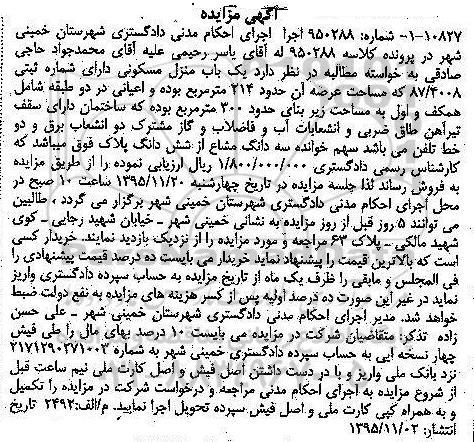 آگهی مزایده
۱۰۸۲۷-۱- شماره: ۹۵۰۲۸۸ اجرا اجرای احکام مدنی دادگستری شهرستان خمینی
شهر در پرونده کلاسه ۹۵۰۲۸۸ له آقای یاسر رحیمی علیه آقای محمدجواد حاجی
صادقی به خواسته مطالبه در نظر دارد یک باب منزل مسکونی دارای شماره ثبتی
۸۷/۴۰۰۸ که مساحت عرصه آن حدود ۲۱۴ مترمربع بوده و اعیانی در دو طبقه شامل
همکف و اول به مساحت زیر بنای حدود ۳۰۰ مترمربع بوده که ساختمان دارای سقف
تیرآهن طاق ضربی و انشعابات آب و فاضلاب و گاز مشترک دو انشعاب برق و دو
خط تلفن می باشد سهم خوانده سه دانگ مشاع از شش دانگ پلاک فوق میباشد که
کارشناس رسمی دادگستری ۱/۸۰۰/۰۰۰/۰۰۰ ریال ارزیابی نموده را از طریق مزایده
به فروش رساند لذا جلسه مزایده در تاریخ چهارشنبه ۱۳۹۵/۱۱/۲۰ ساعت ۱۰ صبح در
محل اجرای احکام مدنی دادگستری شهرستان خمینی شهر برگزار می گردد ، طالبین
می توانند ۵ روز قبل از روز مزایده به نشانی خمینی شهر - خیابان شهید رجایی - کوی
شهید مالکی - پلاک ۶۳ مراجعه و مورد مزایده را از نزدیک بازدید نمایند. خریدار کسی
است که بالاترین قیمت را پیشنهاد نماید خریدار می بایست ده درصد قیمت پیشنهادی را
فی المجلس و مابقی را ظرف یک ماه از تاریخ مزایده به حساب سپرده دادگستری واریز
نماید در غیر این صورت ده درصد اولیه پس از کسر هزینه های مزایده به نفع دولت ضبط
خواهد شد. مدیر اجرای احکام مدنی دادگستری شهرستان خمینی شهر - علی حسن
زاده تذکر: متقاضیان شرکت در مزایده می بایست ۱۰ درصد بهای مال را طی فیش
چهار نسخه ایی به حساب سپرده دادگستری خمینی شهر به شماره ۲۱۷۱۲۹۰۲۷۱۰۰۳
نزد بانک ملی واریز و با در دست داشتن اصل فیش و اصل کارت ملی نیم ساعت قبل
از شروع مزایده به اجرای احکام مدنی مراجعه و درخواست شرکت در مزایده را تکمیل
و به همراه کپی کارت ملی و اصل فیش سپرده تحویل اجرا نمایید. م/الف:۲۴۹۲ تاریخ
انتشار: ۱۳۹۵/۱۱/۰۲